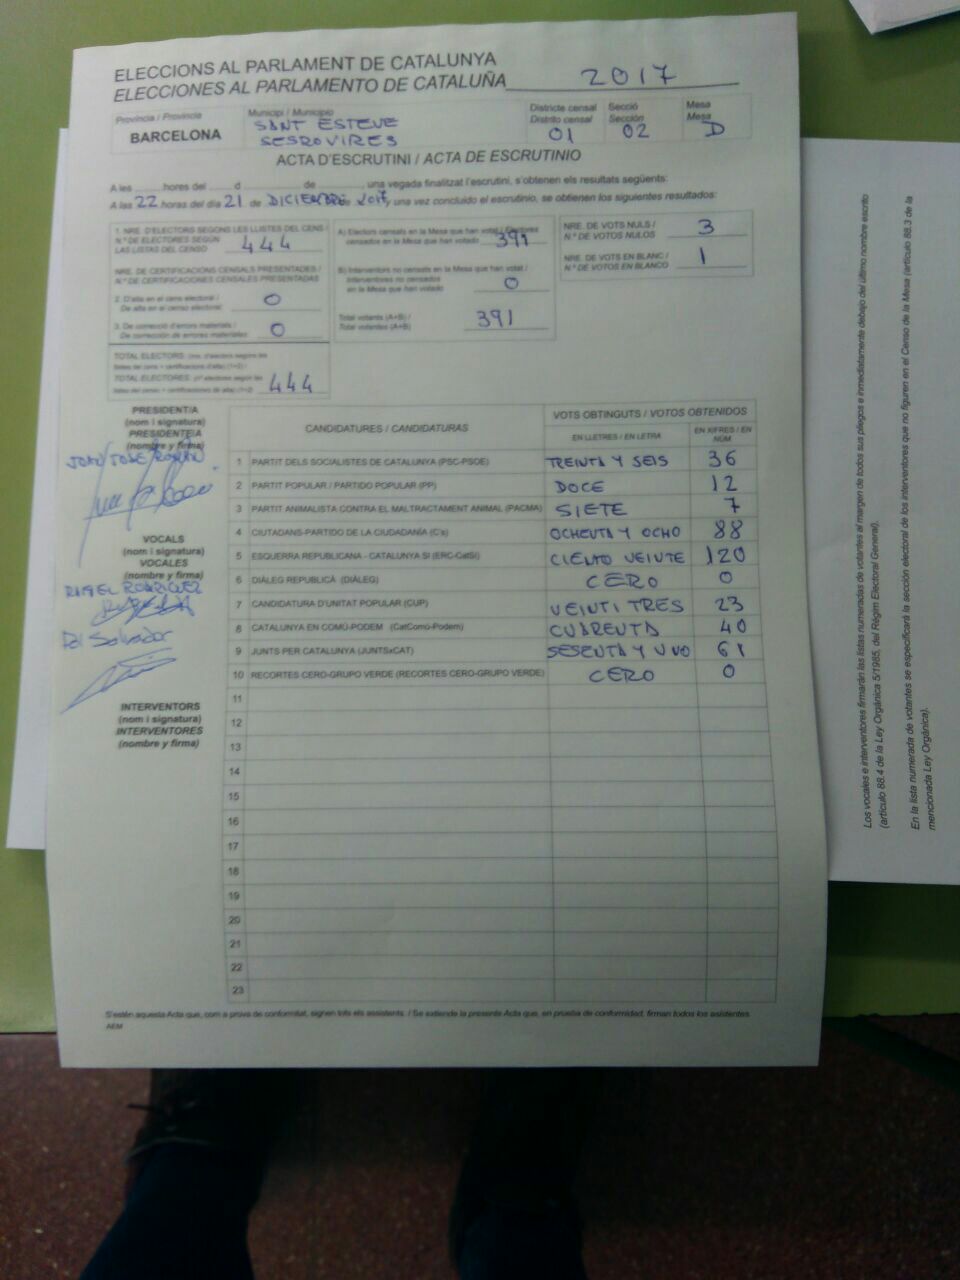 ELECCIONS AL PARLAMENT DE CATALUNYA
ELECCIONES AL PARLAMENTO DE CATALUÑA 2017
Província / Provincia
BARCELONA
Municipi / Municipio
SANT ESTEVE
SESROVIRES
Districte censal
Distrito censal
01
Secció
Sección
02
Mesa
Mesa
D
ACTA D'ESCRUTINI / ACTA DE ESCRUTINIO
A les hores del d de , una vegada finalitzat l'escrutini, s'obtenen els resultats següents:
A las 22 horas del día 21 de DICIEMBRE 2017, una vez concluido el escrutinio, se obtienen los siguientes resultados:
1. NRE. D'ELECTORS SEGONS LES LLISTES DEL CENS /
N.º DE ELECTORES SEGÚN
LAS LISTAS DEL CENSO
444
NRE. DE CERTIFICACIONS CENSALS PRESENTADES /
N.º DE CERTIFICACIONES CENSALES PRESENTADAS
2. D'alta en el cens electoral /
De alta en el censo electoral
0
3. De correcció d'errors materials /
De corrección de errores materiales
0
TOTAL ELECTORS: (nre. d'electors segons les
llistes del cens + certificacions d'alta) (1+2) /
TOTAL ELECTORES: (nº electores según las
listas del censo + certificaciones de alta) (1+2)
444
A) Electors censats en la Mesa que han votat / Electores
censados en la Mesa que han votado
391
B) Interventors no censats en la Mesa que han votat /
Interventores no censados
en la Mesa que han votado
0
Total votants (A+B) /
Total votantes (A+B)
391
NRE. DE VOTS NULS /
N.º DE VOTOS NULOS
3
NRE. DE VOTS EN BLANC /
N.º DE VOTOS EN BLANCO
1
PRESIDENT/A
(nom i signatura)
PRESIDENTE/A
(nombre y firma)
JOAN JOSE ROMAN
VOCALS
(nom i signatura)
VOCALES
(nombre y firma)
RAFAEL RODRIGUEZ
Salvador
INTERVENTORS
(nom i signatura)
INTERVENTORES
(nombre y firma)
CANDIDATURES / CANDIDATURAS
VOTS OBTINGUTS / VOTOS OBTENIDOS
EN LLETRES / EN LETRA
EN XIFRES / EN
NÚM
1 PARTIT DELS SOCIALISTES DE CATALUNYA (PSC-PSOE) TREINTA Y SEIS 36
2 PARTIT POPULAR / PARTIDO POPULAR (PP) DOCE 12
3 PARTIT ANIMALISTA CONTRA EL MALTRACTAMENT ANIMAL (PACMA) SIETE 7
4 CIUTADANS-PARTIDO DE LA CIUDADANÍA (C's) OCHENTA Y OCHO 88
5 ESQUERRA REPUBLICANA - CATALUNYA SÍ (ERC-CatSí) CIENTO VEINTE 120
6 DIÀLEG REPUBLICÀ (DIÀLEG) CERO 0
7 CANDIDATURA D'UNITAT POPULAR (CUP) VEINTI TRES 23
8 CATALUNYA EN COMÚ-PODEM (CatComú-Podem) CUARENTA 40
9 JUNTS PER CATALUNYA (JUNTSxCAT) SESENTA Y UNO 61
10 RECORTES CERO-GRUPO VERDE (RECORTES CERO-GRUPO VERDE) CERO 0
11
12
13
14
15
16
17
18
19
20
21
22
23
S'estén aquesta Acta que, com a prova de conformitat, signen tots els assistents. / Se extiende la presente Acta que, en prueba de conformidad, firman todos los asistentes.
AEM
Los vocales e interventores firmarán las listas numeradas de votantes al margen de todos sus pliegos e inmediatamente debajo del último nombre escrito
(artículo 88.4 de la Ley Orgánica 5/1985, del Régim Electoral General).
En la lista numerada de votantes se especificará la sección electoral de los interventores que no figuren en el Censo de la Mesa (artículo 88.3 de la
mencionada Ley Orgánica).